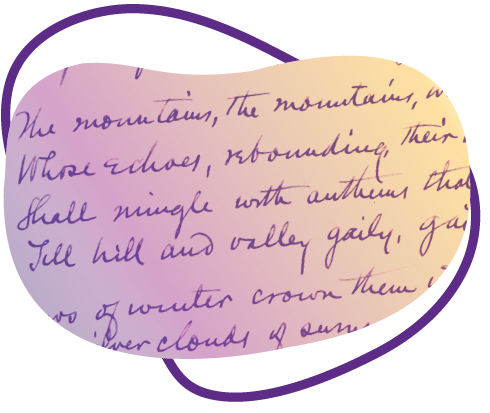 The mountains, the mountains,
Whose echoes, rebounding, their
Shall mingle with anthems that
Till hill and valley gaily, gai
of winter crown them
clouds of